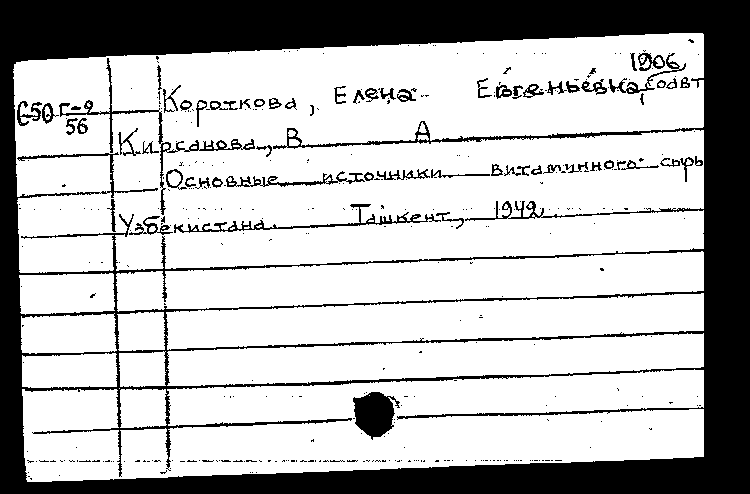 1906
Короткова, Елена Евгеньевна, соавт
650 Г-2
56
Кирсанова, В А
Основные источники витаминного сырь
Узбекистана. Ташкент, 1942.